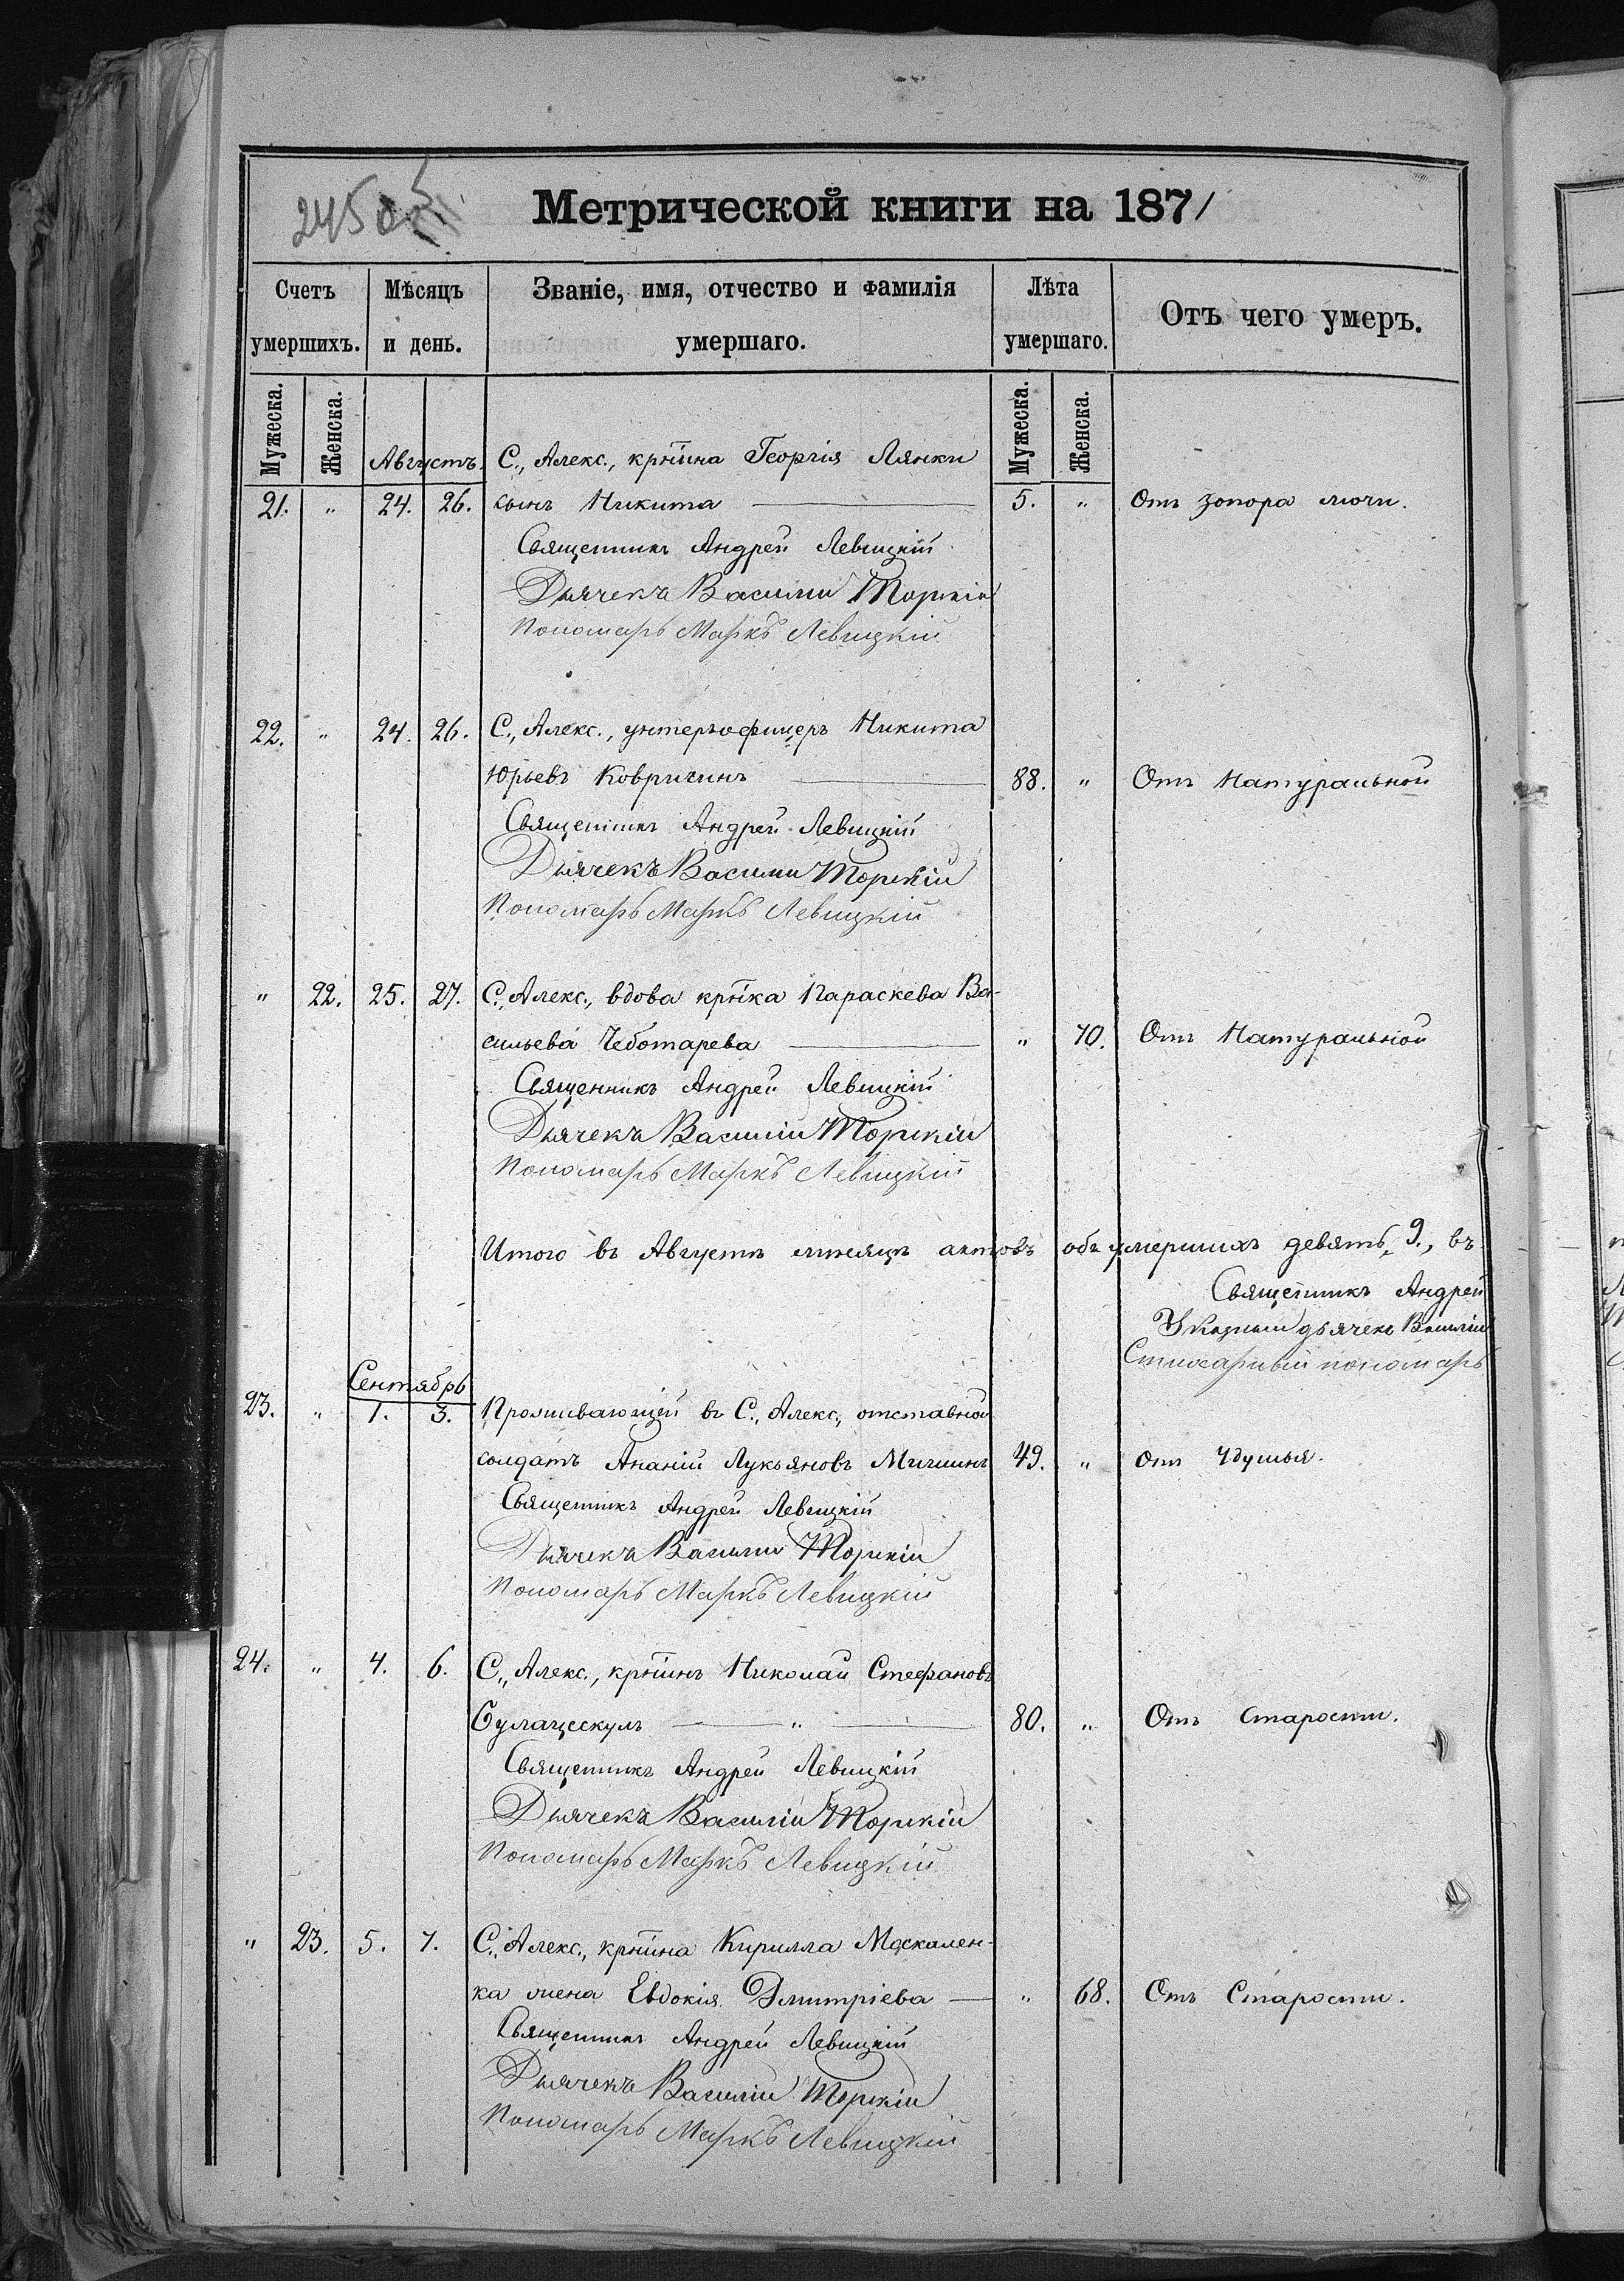 Метрической книги на 1871
Счетъ умершихъ.
Мѣсяцъ и день.
Званіе, имя, отчество и фамилія умершаго.
Лѣта умершаго.
Отъ чего умеръ.
Мужеска. Женска. Мужеска. Женска.
Августъ. С., Алекс., кр҃нина Георгія Лянки
21. „ 24. 26. сынъ Никита 5. „ Отъ запора мочи.
Священникъ Андрей Левицкій
Дьячекъ Василий Торскій
Пономарь Маркъ Левицкій
22. „ 24. 26. С., Алекс., унтеръофицеръ Никита
Юрьевъ Ковригинъ 88. „ Отъ Натуральной
Священникъ Андрей Левицкій
Дьячекъ Василий Торскій
Пономарь Маркъ Левицкій
„ 22. 25. 27. С., Алекс., вдова кр҃нка Параскева Ва-
сильева Чеботарева „ 70. Отъ Натуральной
Священникъ Андрей Левицкій
Дьячекъ Василій Торскій
Пономарь Маркъ Левицкій
Итого въ Августѣ мѣсяцѣ актовъ объ умершихъ девять, 9., въ
Священникъ Андрей
Указный дьячекъ Василій
Стихарный пономарь
Сентябрь
23. „ 1. 3. Проживающій въ С., Алекс., отставной
солдатъ Ананій Лукьяновъ 49. „ Отъ Удушья.
Священникъ Андрей Левицкій
Дьячекъ Василий Торскій
Пономарь Маркъ Левицкій
24. „ 4. 6. С., Алекс., кр҃нинъ Николай Стефановъ
Булацескулъ „ 80. „ Отъ Старости.
Священникъ Андрей Левицкій
Дьячекъ Василій Торскій
Пономарь Маркъ Левицкій
„ 23. 5. 7. С., Алекс., кр҃нина Кирилла Москален-
ка жена Евдокія Димитріева „ 68. Отъ Старости.
Священникъ Андрей Левицкій
Дьячекъ Василій Торскій
Пономарь Маркъ Левицкій